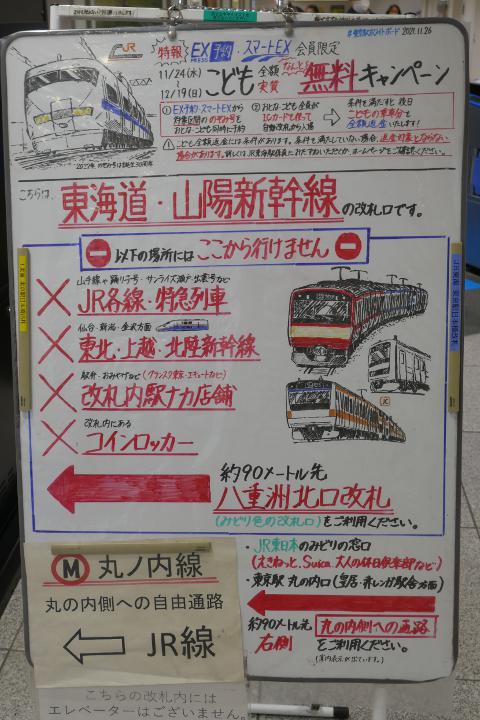 #東京駅のホワイトボード 2021.11.26
JR
特報 EX予約・スマートEX 会員限定
11/24(水)
12/19(日)
こども 全額 実質 なんと 無料キャンペーン
① EX予約・スマートEXから
対象区間ののぞみ号を
おとな・こども同時に予約
② おとな・こども全員が
ICカードで
自動改札から入場
条件を満たすと後日
こどもの乗車分を
全額返金いたします!
こども全額返金には条件があります。条件を満たしていない場合、返金対象とならない
場合があります。詳しくはJR東海駅係員におたずねいただくか、ホームページをご確認ください。
こちらは、
東海道・山陽新幹線の改札口です。
以下の場所にはここから行けません
山手線や踊り子号・サンライズ瀬戸・出雲号など
JR各線・特急列車
仙台・新潟・金沢方面
東北・上越・北陸新幹線
駅弁・おみやげなど(グランスタ東京・エキュートなど)
改札内駅ナカ店舗
改札内にある
コインロッカー
約90メートル先
八重洲北口改札
(みどり色の改札口)をご利用ください。
M 丸ノ内線
丸の内側への自由通路
JR線
・JR東日本のみどりの窓口
(えきねっと、Suica、大人の休日倶楽部など)
・東京駅 丸の内口(皇居・赤レンガ駅舎方面)
約90メートル先 丸の内側への通路
右側 をご利用ください。
(案内表示が出ています。)
こちらの改札内には
エレベーターはございません。